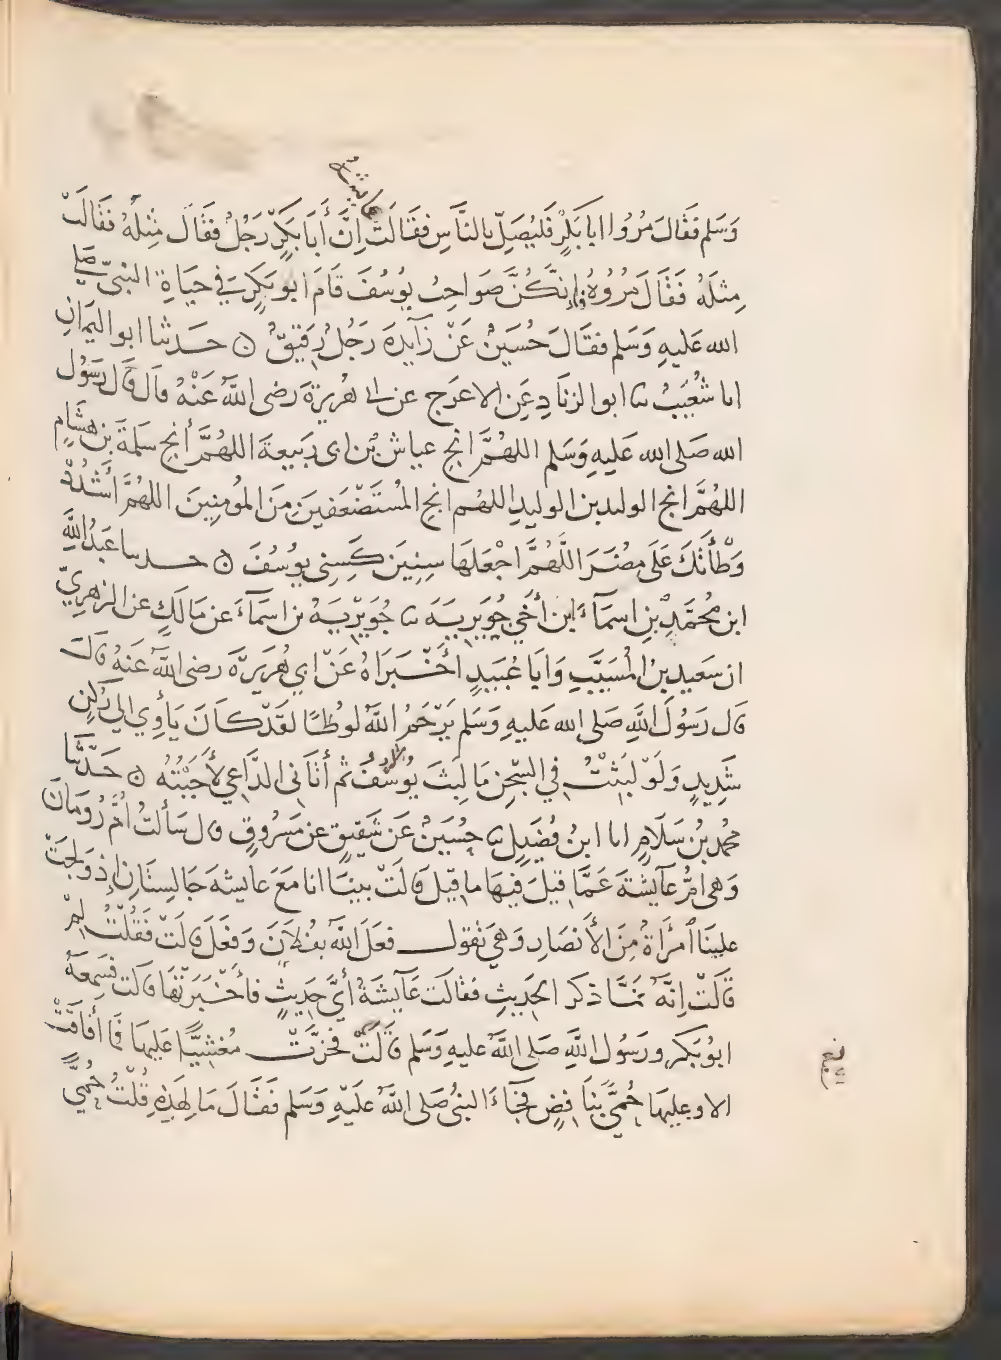 عائشة
وَسَلم فَقَالَ مُرُوا ابا بَكْرٍ فَليُصَلِّ بالنَّاسِ فقَالَتْ إنَّ أَبَا بَكْرٍ رَجُلٌ فقَالَ مِثلَهُ فقَالَتْ
مِثلَهُ فَقَالَ مُرُوهُ فإنكُنَّ صَواحِبُ يُوسُفَ فَامَّ ابو بَكرٍ في حَيَاةِ النبيّ صَلى
الله عَليهِ وَسَلم فقَالَ حُسَينٌ عَنْ زَايِدَةَ رَجُلٌ رَقيقٌ ٥ حَدثنا ابو اليمَانِ
انا شُعَيبٌ ثنا ابو الزنَادِ عَنِ الاعرَج عن ابي هُرَيرَةَ رَضى اللهُ عَنْهُ قال قَالَ رَسُوْل
الله صَلى الله عَليهِ وَسَلم اللهُمَّ انجِ عياش بْن ابى رَبيعةَ اللهُمَّ أنجِ سَلمَةَ بن هشَامٍ
اللهُمَّ انج الوليد بن الوليدِ اللهُم انجِ المُستَضْعَفينَ مِنَ المُومِنِينَ اللهُمَّ اشْدُدْ
وَطْأَتَكَ عَلَى مُضَرَ اللَّهُمَّ اجْعَلهَا سِنِينَ كَسِنِى يوُسُفَ ٥ حدثنا عَبدُ اللَّهِ
ابن محُمّدِ بْنِ اسمَآءَ ابن أخي جُوَيريَةَ ثنا جُوَيْريَةُ بن اسمَآءَ عن مَالَكٍ عن الزهرِيّ
ان سَعيدِ بن المُسَيَّبِ وَابَا عُبَيدٍ اخْبَرَاهُ عَنْ ابي هُرَيرَةَ رضى اللهُ عَنهُ قالَ
قال رَسُولُ اللَّهِ صَلى الله عَليهِ وَسَلم يَرْحَمُ اللهُ لوطًا لقَدْ كانَ يَأوِي الي رُكنٍ
شَدِيدٍ وَلَوْ لَبِثْتُ في السّجْنِ مَا لبثَ يُوسُفُ ثم أتَانى الدَّاعي لأجَبْتُه ٥ حَدّثنَا
محمد بنُ سَلَامٍ انا ابنُ فُضَيلٍ ثنا حُسَينٌ عَنْ شَقيقٍ عن مَسرُوقٍ قال سَألتُ امَّ رُومَانَ
وَهى امُّ عَآيشَةَ عَمَّا قيلَ فيهَا ما قيلَ قَالَتْ بينَا انا مَعَ عَايشة جَالِستَانِ إذ وَلجَتْ
علينَا امْرَأةٌ مِنَ الأَنصَارِ وَهيَ تقول فعَلَ اللهُ بفُلاَنَ وَفعَلَ قالَتْ فَقُلْتُ لِمَ
قَالَتْ إنَّهُ نَمَّا ذكرَ الحَدِيثِ فقَالَت عَآيشَةُ أيّ حَدِيثٍ فأخْبَرَتْهَا قالت فسَمِعَهُ
ابوُ بَكر ورَسُول اللَّهِ صَلى اللهُ عَليهِ وَسَلم قَالَتْ فخَرَّتْ مَغشِيًّا عَليهَا فمَا أفَاقَتْ
الا وعليهَا حُمىًّ بنَافضٍ فجَآءَ النبىُّ صَلى اللهُ عَليْهِ وَسَلم فَقَالَ مَا لِهَذِهِ قُلْتُ حُمَّى